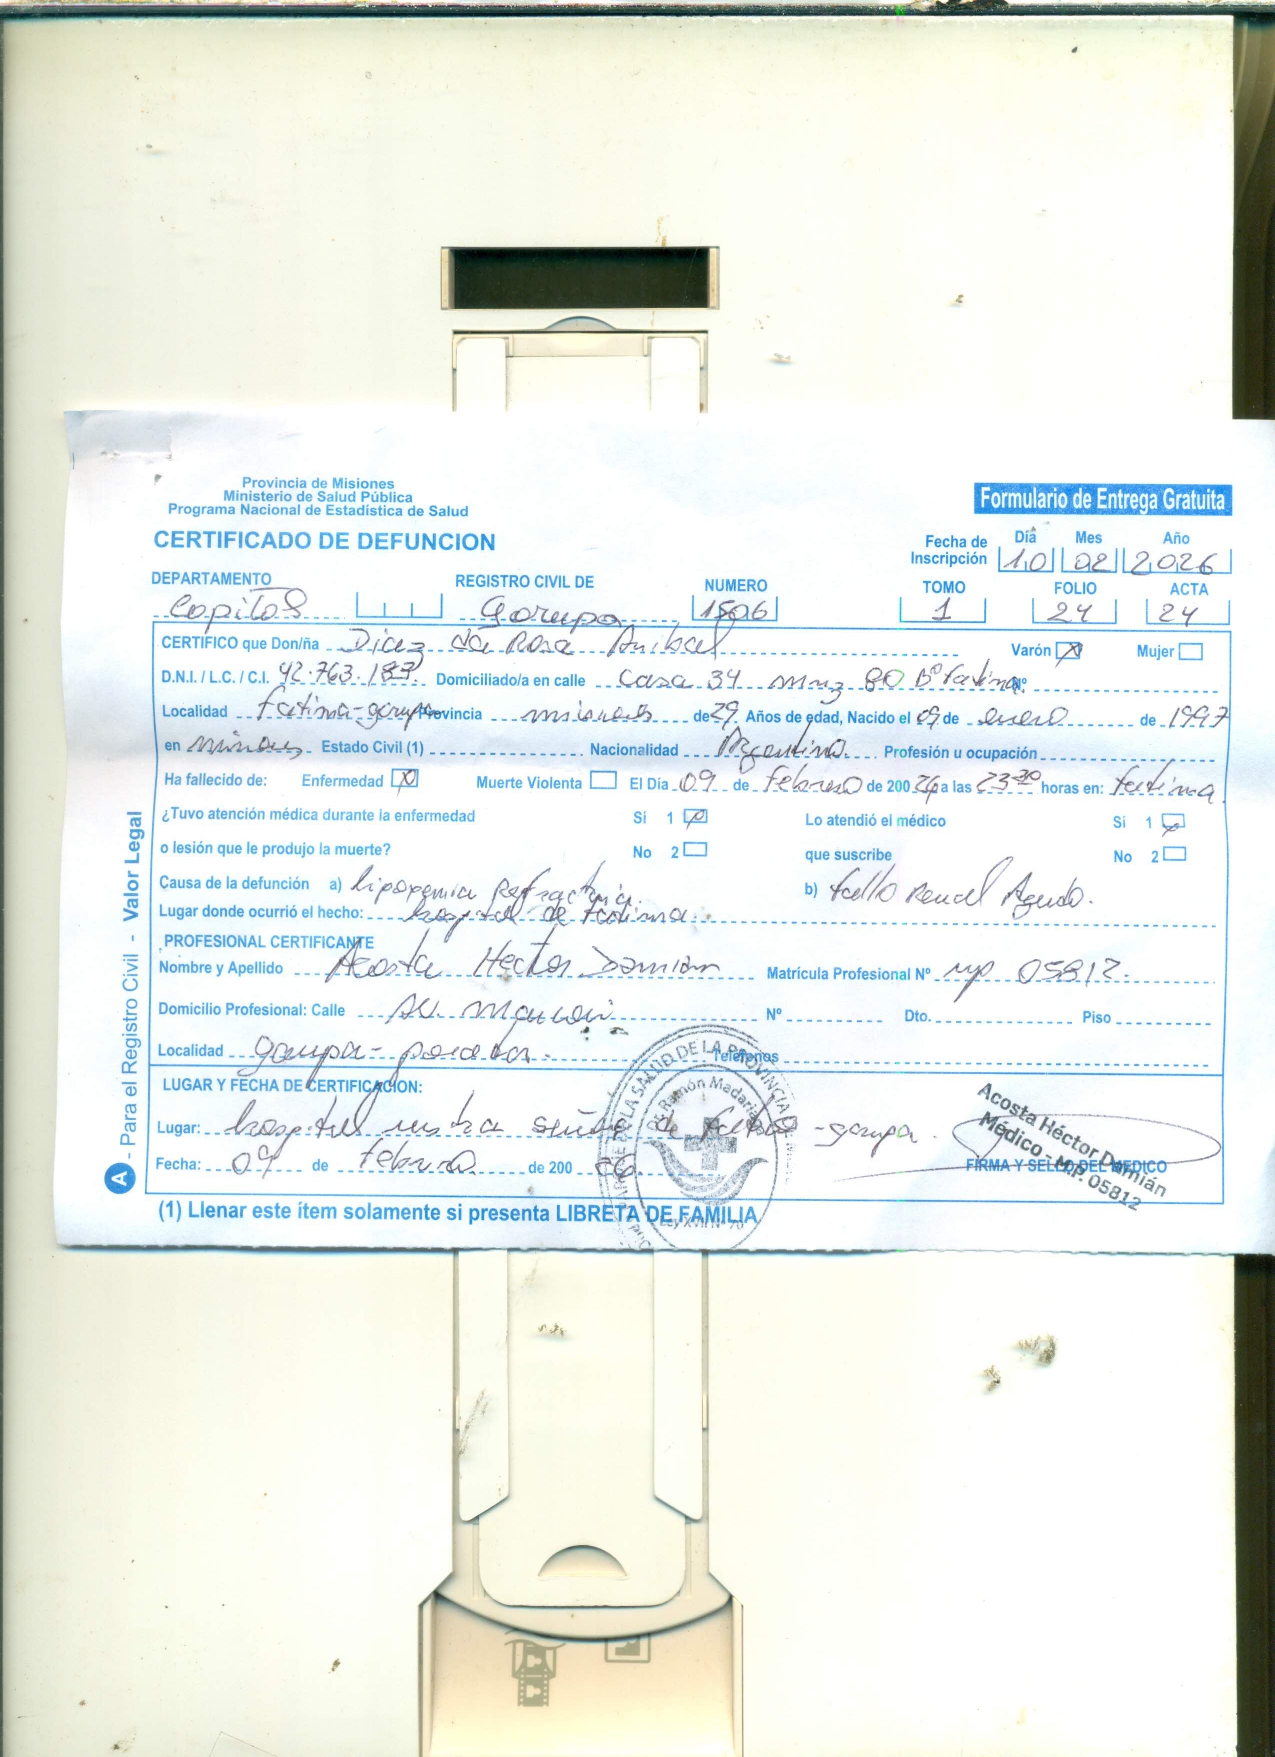 Provincia de Misiones
Ministerio de Salud Pública
Programa Nacional de Estadística de Salud
Formulario de Entrega Gratuita
CERTIFICADO DE DEFUNCION
Fecha de Inscripción Día 10 Mes 02 Año 2026
DEPARTAMENTO Capital REGISTRO CIVIL DE Garupa NUMERO 1506 TOMO 1 FOLIO 24 ACTA 24
CERTIFICO que Don/ña Diaz da Rosa Anibal Varón X Mujer
D.N.I. / L.C. / C.I. 42.763.187 Domiciliado/a en calle Casa 34 mnz 80 B° Fatima Nº
Localidad Fatima-garupa Provincia misiones de 29 Años de edad, Nacido el 09 de enero de 1997
en misiones Estado Civil (1) Nacionalidad Argentina Profesión u ocupación
Ha fallecido de: Enfermedad X Muerte Violenta El Día 09 de Febrero de 200 26 a las 23:30 horas en: Fatima
¿Tuvo atención médica durante la enfermedad Sí 1 Lo atendió el médico Sí 1
o lesión que le produjo la muerte? No 2 que suscribe No 2
Causa de la defunción a) hipoxemia Refractaria b) fallo Renal Agudo.
Lugar donde ocurrió el hecho: hospital de Fatima.
PROFESIONAL CERTIFICANTE
Nombre y Apellido Acosta Hector Damián Matrícula Profesional Nº mp 05812
Domicilio Profesional: Calle Av. Nº Dto. Piso
Localidad garupa - Teléfonos
LUGAR Y FECHA DE CERTIFICACIÓN:
Lugar: hospital señora de Fatima - garupa.
Fecha: 09 de Febrero de 200 26
FIRMA Y SELLO DEL MEDICO
Acosta Héctor Damián
Médico - M.P. 05812
DE LA SALUD DE LA PROVINCIA DE
Ramón Madaria
Ley XVII Nº 70
(1) Llenar este ítem solamente si presenta LIBRETA DE FAMILIA
A - Para el Registro Civil - Valor Legal